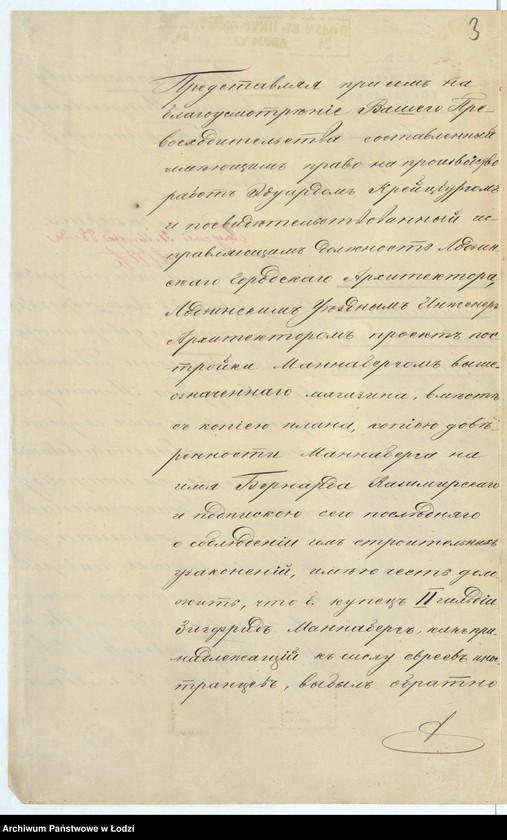 3
Представляя при семъ на
благоусмотрѣніе Вашего Пре-
восходительства составленный
имѣющимъ право на производство
работъ Эдуардомъ Крейцбургомъ
и посвидѣтельствованный ис-
правляющимъ должность Лодзин-
скаго Городскаго Архитектора,
Лодзинскимъ Уѣзднымъ Инженеръ
Архитекторомъ проектъ пос-
тройки Маннабергомъ выше-
означеннаго магазина, вмѣстѣ
съ копіею плана, копіею довѣ-
ренности Маннаберга на
имя Бернарда Казимирскаго
и подпискою сего послѣдняго
о соблюденіи имъ строительныхъ
узаконеній, имѣю честь доло-
жить, что б. купецъ II гильдіи
Зигфридъ Маннабергъ, какъ при-
надлежащій къ числу евреевъ ино-
странцевъ, выбылъ обратно
Archiwum Państwowe w Łodzi